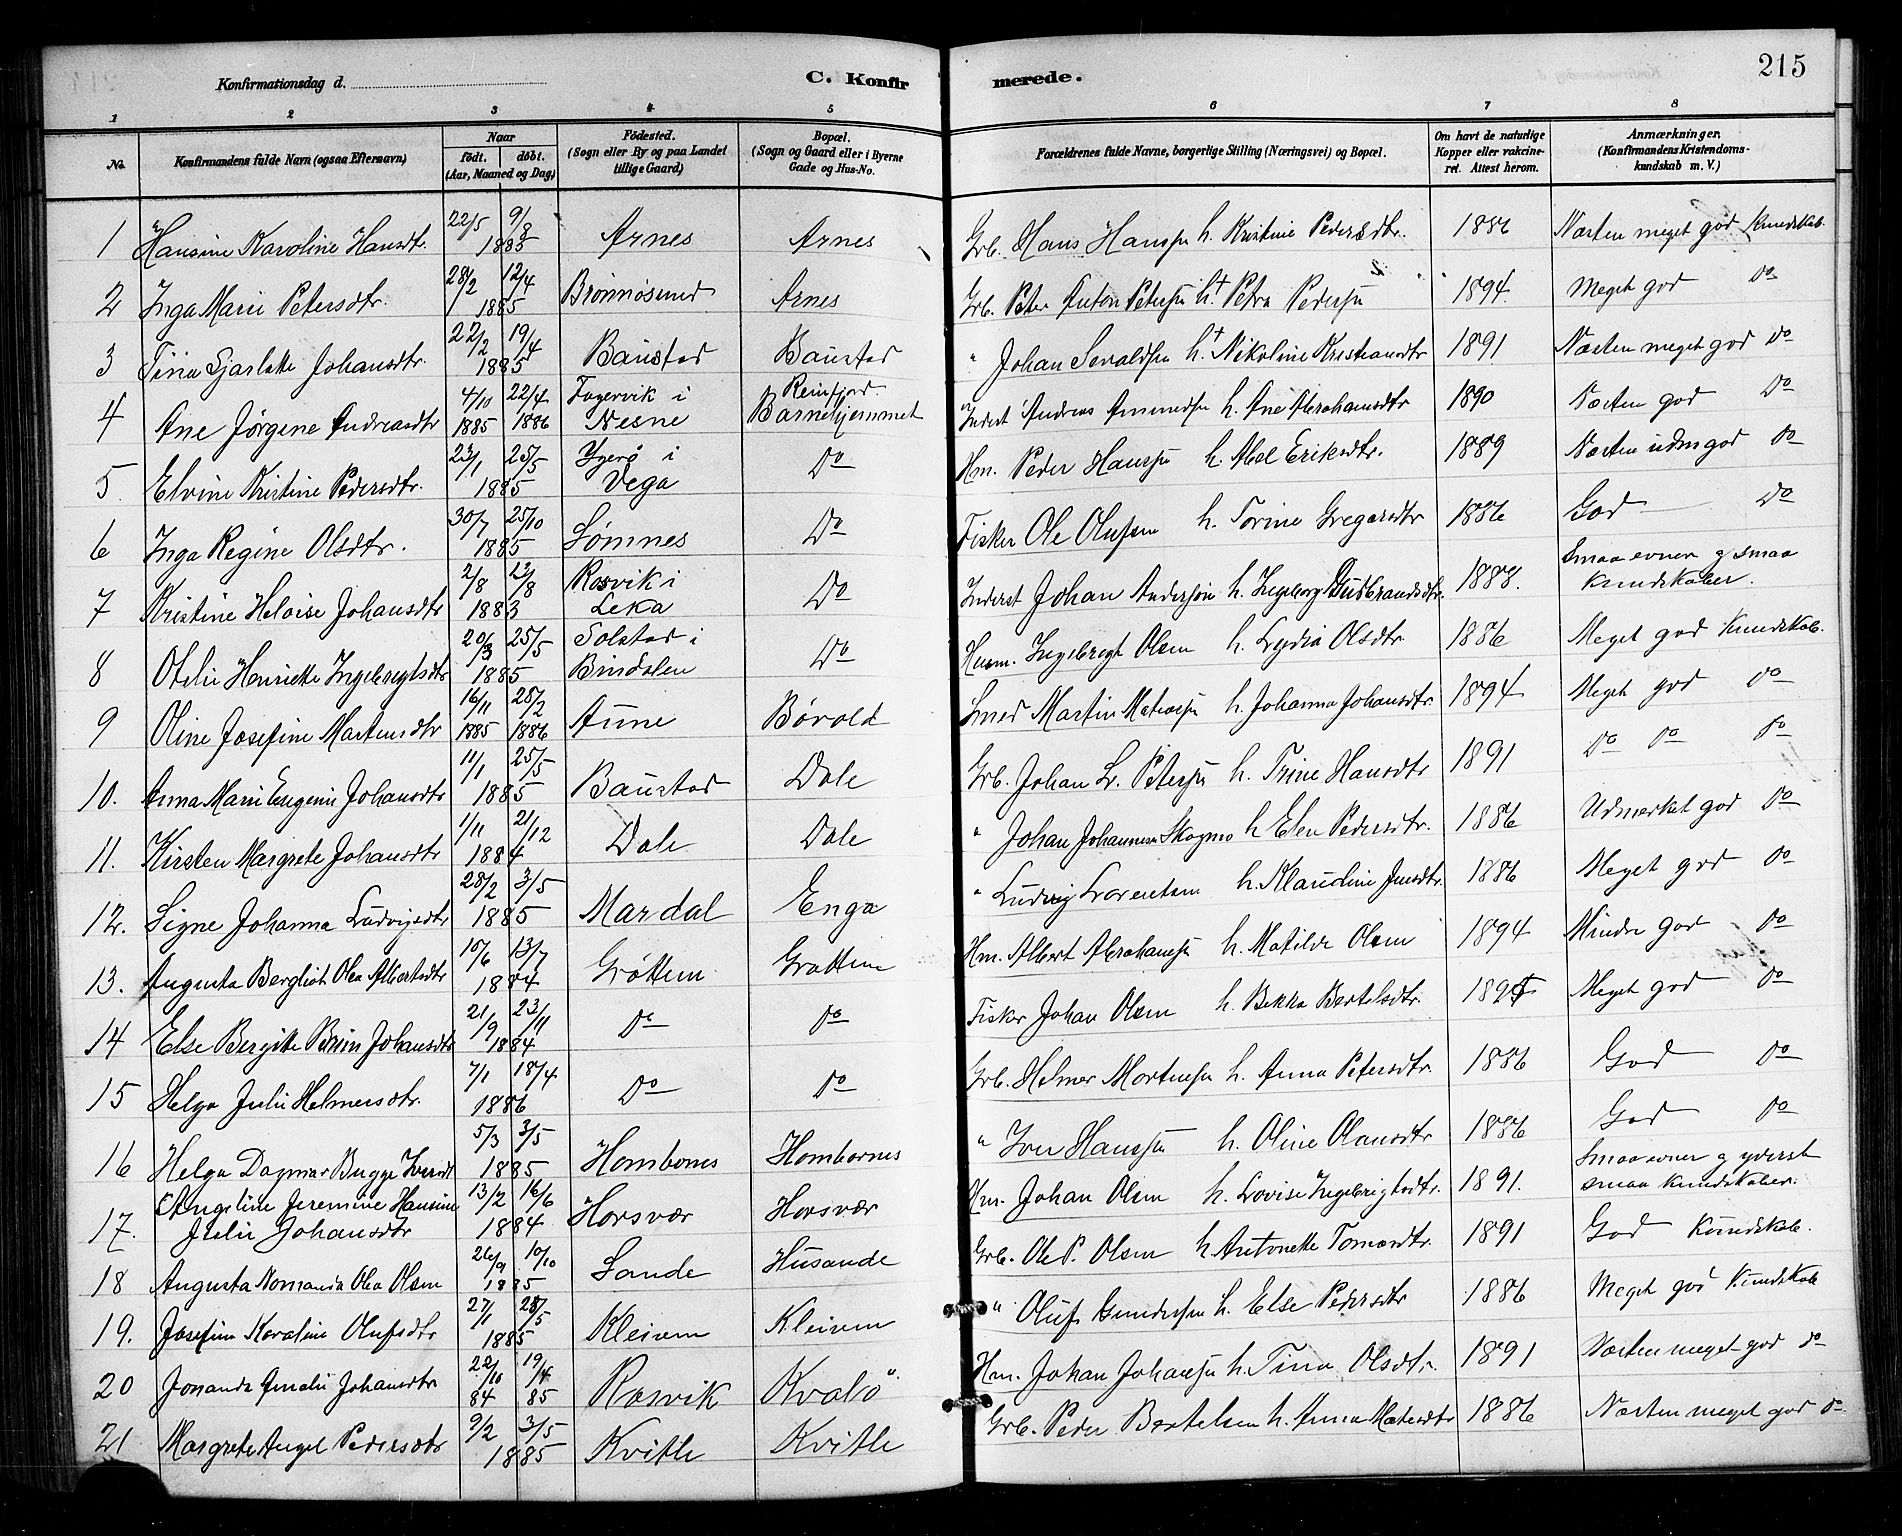 215
Konfirmationsdag d.
C. Konfirmerede.
1 2 3 4 5 6 7 8
No. Konfirmandens fulde Navn (ogsaa Efternavn) Naar født. døbt. (Aar, Maaned og Dag) Födested. (Sogn eller By og paa Landet tillige Gaard) Bopæl. (Sogn og Gaard eller i Byerne Gade og Hus-No. Forældrenes fulde Navne, borgerlige Stilling (Næringsvei) og Bopæl. Om havt de naturlige Kopper eller vakcineret. Attest herom. Anmærkninger. (Konfirmandens Kristendomskundskab m. V.)
1 Hansine Karoline Hansdtr. 22/5 9/8 1885 Arnes Arnes Grb. Hans Hansen h. Kristine Pedersdtr. 1886 Næsten meget god Kundskab.
2 Inga Marie Petersdtr. 28/2 12/4 1885 Brønnøsund Arnes Grb. Peter Anton Petersen h† Petra Pedersen 1894 Meget god Do
3 Tina Johansdtr. 22/2 19/4 1885 Baustad Baustad " Johan Sevaldsen h† Nikoline Kristiansdtr 1891 Næsten meget god Do
4 Ane Jørgine Andreasdtr 4/10 1885 22/4 1886 Fagervik i Nesne Reinfjord. Barnehjemmet Inderst Andreas Ammundsen h. Ane Abrahamsdtr 1890 Næsten god Do
5. Elvine Kristine Pedersdtr. 23/1 25/5 1885 Ygerø i Vega Do Hm. Peder Hansen h. Abel Eriksdtr. 1889 Næsten udm god Do
6 Inga Regine Olsdtr. 30/7 25/10 1885 Sømnes Do Fisker Ole Olufsen h. Torine Gregersdtr 1886 God Do
7 Kristine Heloise Johansdtr 2/8 12/8 1883 Rosvik i Leka Do Inderst Johan Andersen h. Ingeborg Gudbrandsdtr. 1888. Smaa evner og smaa kundskaber.
8 Otelie Henriette Ingebrigtsdtr 20/3 25/5 1885 Solstad i Bindalen Do Husm. Ingebrigt Olsen h. Lydia Olsdtr 1886 Meget god Kundskab.
9 Oline Josefine Martensdtr 16/11 1885 25/2 1886 Aune Bøvold Smed Martin Mathiasen h. Johanna Johansdtr. 1894 Meget god Do
10. Anna Marie Eugenie Johansdtr 11/1 25/5 1885 Baustad Dale Grb. Johan Lr. Petersen h. Trine Hansdtr 1891 Do Do Do
11. Kirsten Margrete Johansdtr 1/11 21/12 1884 Dale Dale " Johan Johannesen Skogmo h Elen Pedersdtr. 1886 Udmerket god Do
12. Signe Johanna Ludvigsdtr 28/2 3/5 1885 Mardal Enga " Ludvig Lorentsen h. Klaudine Jensdtr. 1886 Meget god Do
13. Augusta Bergliot Olea Albertsdtr 10/6 13/7 1884 Grøttem Grøttem Hm. Albert Abrahamsen h. Matilde Olsen 1894 Mindre god Do
14 Else Bergitte Johansdtr 21/9 23/11 1884 Do Do Fisker Johan Olsen h. Bekka Bertelsdtr. 1894 Meget god Do
15 Helga Julie Helmersdtr. 7/1 18/4 1886 Do Do Grb. Helmer Mortensen h. Anna Petersdtr. 1886 God Do
16 Helga Dagmar Bugge Iversdt 5/3 3/5 1885 Hombornes Hombornes " Iver Hansen h. Oline Olausdtr 1886 God Do
17. Angeline Jeremine Hansine Julie Johansdtr 13/2 16/6 1884 Horsvær Horsvær Hm. Johan Olsen h. Lovise Ingebrigtsdtr. 1891. Smaa evner og yderst smaa kundskaber.
18 Augusta Normanda Olea Olsen 26/9 10/10 1885 Sande Husande Grb. Ole P. Olsen h. Antonette Tomasdtr. 1891 God Kundskab.
19. Josefine Karoline Olufsdtr 27/1 25/5 1885 Kleivem Kleivem " Oluf Gundersen h. Else Pedersdtr 1886 Meget god Kundskab
20 Jonanda Amalie Johansdtr 22/10 84 19/4 85 Rosvik Kvalø Hm. Johan Johansen h. Tina Olsdtr. 1891 Næsten meget god Do
21 Margrete Angel Pedersdtr 9/2 3/5 1885 Kvitle Kvitle Grb. Peder Bertelsen h. Anna Matesdtr 1886 Næsten meget god Do